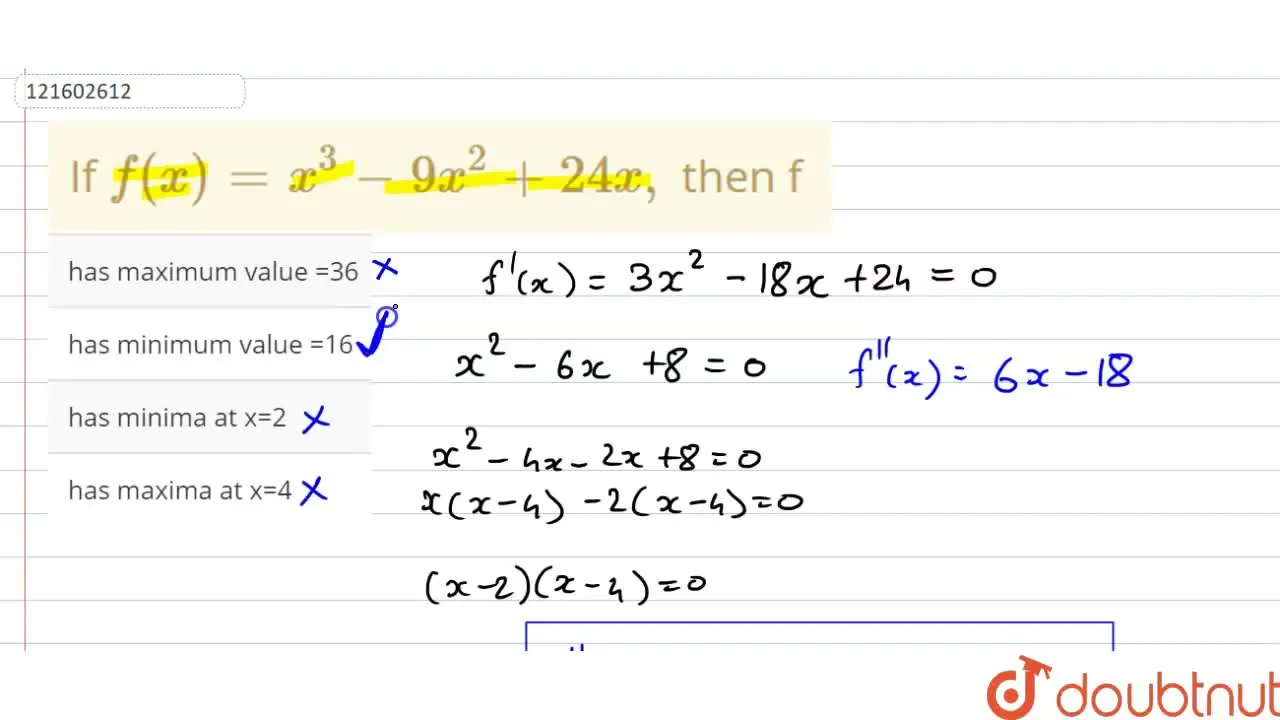 121602612
If f(x) = x³ − 9x² + 24x, then f
has maximum value =36 ×
f'(x) = 3x² − 18x + 24 = 0
has minimum value =16 ✓
x² − 6x + 8 = 0
f''(x) = 6x − 18
has minima at x=2 ×
x² − 4x − 2x + 8 = 0
has maxima at x=4 ×
x(x−4) −2(x−4) = 0
(x−2)(x−4) = 0
doubtnut